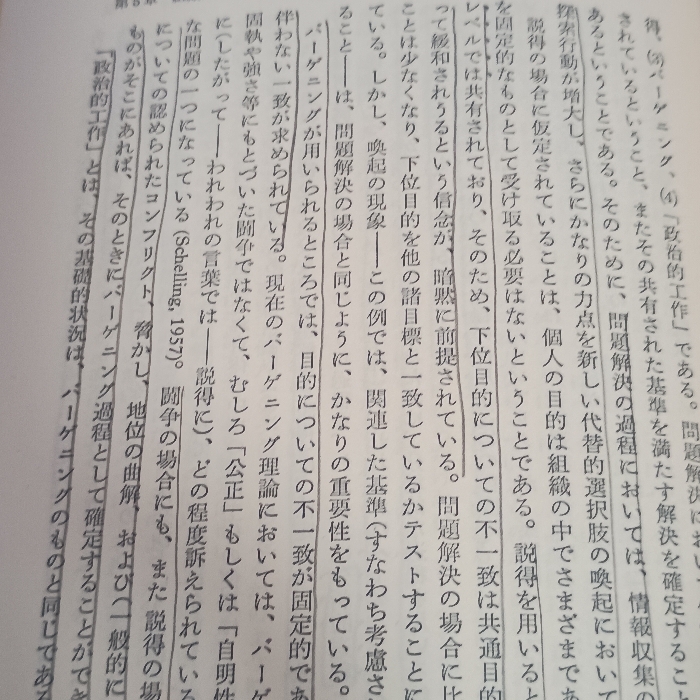 第5章
得、(3)バーゲニング、(4)「政治的工作」である。問題解決におい
されているということ、またその共有された基準を満たす解決を確定するこ
あるということである。そのために、問題解決の過程においては、情報収集の
探索行動が増大し、さらにかなりの力点を新しい代替的選択肢の喚起におい
説得の場合に仮定されていることは、個人の目的は組織の中でさまざまで
を固定的なものとして受け取る必要はないということである。説得を用いると
レベルでは共有されており、そのため、下位目的についての不一致は共通目的
って緩和されうるという信念が、暗黙に前提されている。問題解決の場合に比
ことは少なくなり、下位目的を他の諸目標と一致しているかテストすることに
ている。しかし、喚起の現象――この例では、関連した基準(すなわち考慮さ
ること――は、問題解決の場合と同じように、かなりの重要性をもっている。
バーゲニングが用いられるところでは、目的についての不一致が固定的であ
伴わない一致が求められている。現在のバーゲニング理論においては、バーゲ
固執や強さ等にもとづいた闘争ではなくて、むしろ「公正」もしくは「自明性
に(したがって――われわれの言葉では――説得に)、どの程度訴えられている
な問題の一つになっている(Schelling, 1957)。闘争の場合にも、また説得の場
についての認められたコンフリクト、脅かし、地位の曲解、および(一般的に
ものがそこにあれば、そのときにバーゲニング過程として確定することができ
「政治的工作」とは、その基礎的状況は、バーゲニングのものと同じである